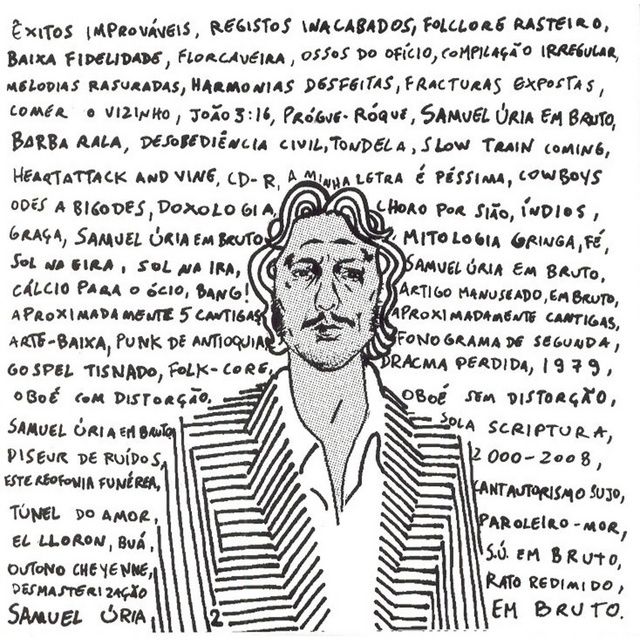 ÊXITOS IMPROVÁVEIS, REGISTOS INACABADOS, FOLCLORE RASTEIRO,
BAIXA FIDELIDADE, FLORCAVEIRA, OSSOS DO OFÍCIO, COMPILAÇÃO IRREGULAR,
MELODIAS RASURADAS, HARMONIAS DESFEITAS, FRACTURAS EXPOSTAS,
COMER O VIZINHO, JOÃO 3:16, PRÓGUE-RÓQUE, SAMUEL ÚRIA EM BRUTO,
BARBA RALA, DESOBEDIÊNCIA CIVIL, TONDELA, SLOW TRAIN COMING,
HEARTATTACK AND VINE, CD-R, A MINHA LETRA É PÉSSIMA, COWBOYS
ODES A BIGODES, DOXOLOGIA, CHORO POR SIÃO, ÍNDIOS,
GRAÇA, SAMUEL ÚRIA EM BRUTO MITOLOGIA GRINGA, FÉ,
SOL NA EIRA, SOL NA IRA, SAMUEL ÚRIA EM BRUTO,
CÁLCIO PARA O ÓCIO, BANG! ARTIGO MANUSEADO, EM BRUTO,
APROXIMADAMENTE 5 CANTIGAS APROXIMADAMENTE CANTIGAS,
ARTE-BAIXA, PUNK DE ANTIOQUIA FONOGRAMA DE SEGUNDA,
GOSPEL TISNADO, FOLK-CORE, DRACMA PERDIDA, 1979,
OBOÉ COM DISTORÇÃO, OBOÉ SEM DISTORÇÃO,
SAMUEL ÚRIA EM BRUTO SOLA SCRIPTURA,
DISEUR DE RUÍDOS, 2000-2008,
ESTEREOFONIA FUNÉREA, CANTAUTORISMO SUJO,
TÚNEL DO AMOR, PAROLEIRO-MOR,
EL LLORON, BUÁ, S.Ú. EM BRUTO,
OUTONO CHEYENNE, RATO REDIMIDO,
DESMASTERIZAÇÃO
SAMUEL ÚRIA 2 EM BRUTO.